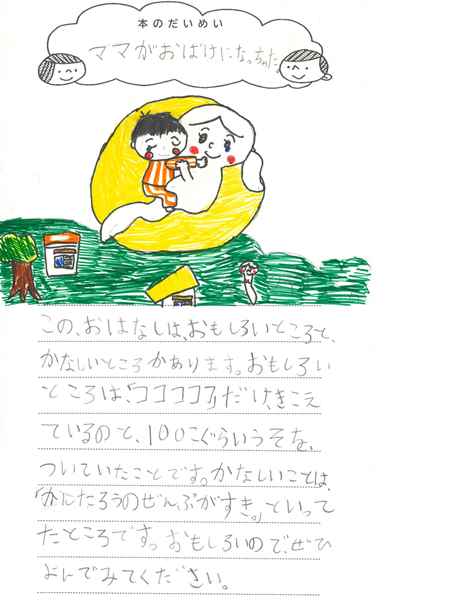 本のだいめい
ママがおばけになっちゃた。
この、おはなしは、おもしろいところと、
かなしいところがあります。おもしろい
ところは、「ココココ」だけ、きこえ
ているのと、100こぐらいうそを、
ついていたことです。かなしいことは、
「かんたろうのぜんぶがすき。」といって
たところです。おもしろいので、ぜひ
よんでみてください。